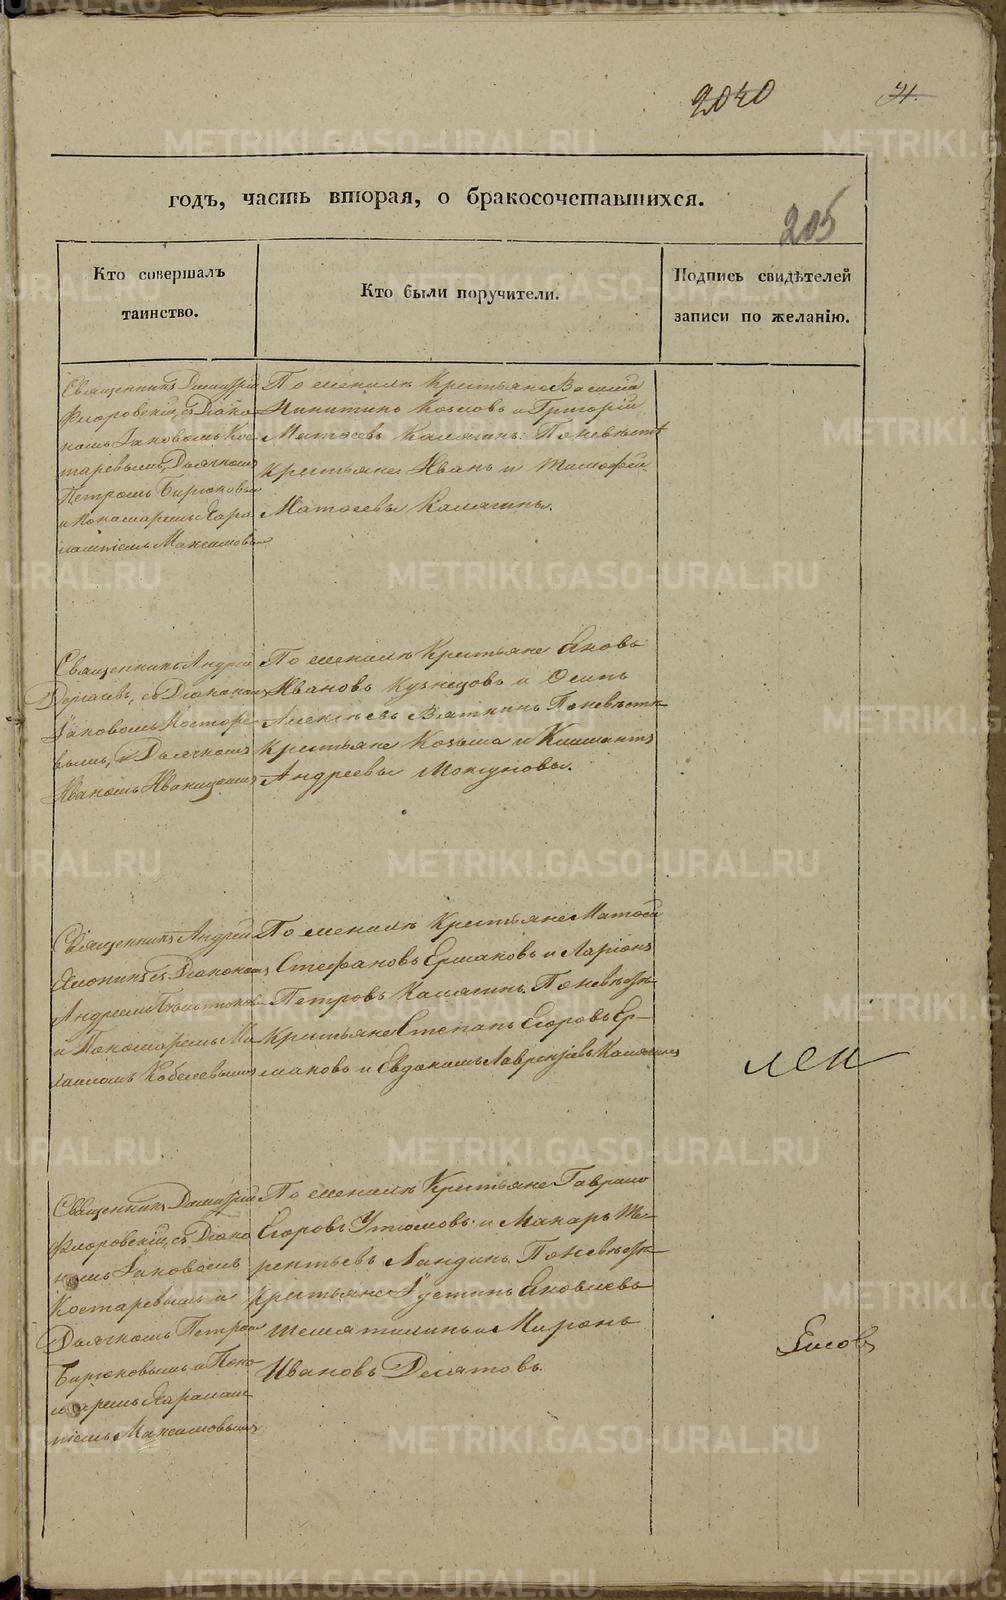 2040
21.
годъ, часть вторая, о бракосочетавшихся.
205
Кто совершалъ
таинство.
Кто были поручители.
Подпись свидѣтелей
записи по желанію.
Священникъ Димитрій
Флоровскій, съ Діако-
номъ Іаковомъ Кос-
таревымъ, Дьячкомъ
Петромъ Бирюковы
и Пономаремъ Хара
лампіемъ Максимовы
По женихѣ Крестьяне Василій
Никитинъ Козловъ и Григорій
Матвеевъ Калягинъ. По невѣстѣ
крестьяне Иванъ и Тимофей
Матвеевы Калягины.
Священникъ Андрей
съ Діакономъ
Іаковомъ Костаре-
вымъ, и Дьячкомъ
Иваномъ Иваницкимъ
По женихѣ Крестьяне Яковъ
Ивановъ Кузнецовъ и Осипъ
Алексѣевъ Вяткинъ. По невѣстѣ
Крестьяне Козьма и Климентъ
Андреевы Мокуновы.
Священникъ Андрей
съ Діакономъ
Андреемъ
и Пономаремъ Ми
хаиломъ Кобелевымъ
По женихѣ Крестьяне Матвей
Стефановъ Ермаковъ и Ларіонъ
Петровъ Калягинъ. По невѣстѣ
Крестьяне Степанъ Егоровъ Ер-
маковъ и Евдокимъ Лаврентьевъ Калягинъ
лен
Священникъ Димитрій
Флоровскій, съ Діако
номъ Іаковомъ
Костаревымъ и
Дьячкомъ Петромъ
Бирюковымъ и Поно
маремъ Харалам
піемъ Максимовымъ
По женихѣ Крестьяне Гаврило
Егоровъ Утюмовъ и Макаръ Те-
рентьевъ Ландинъ. По невѣстѣ
Крестьяне Іустинъ Яковлевъ
Шематилинъ и Миронъ
Ивановъ Делятовъ.
METRIKI.GASO-URAL.RU